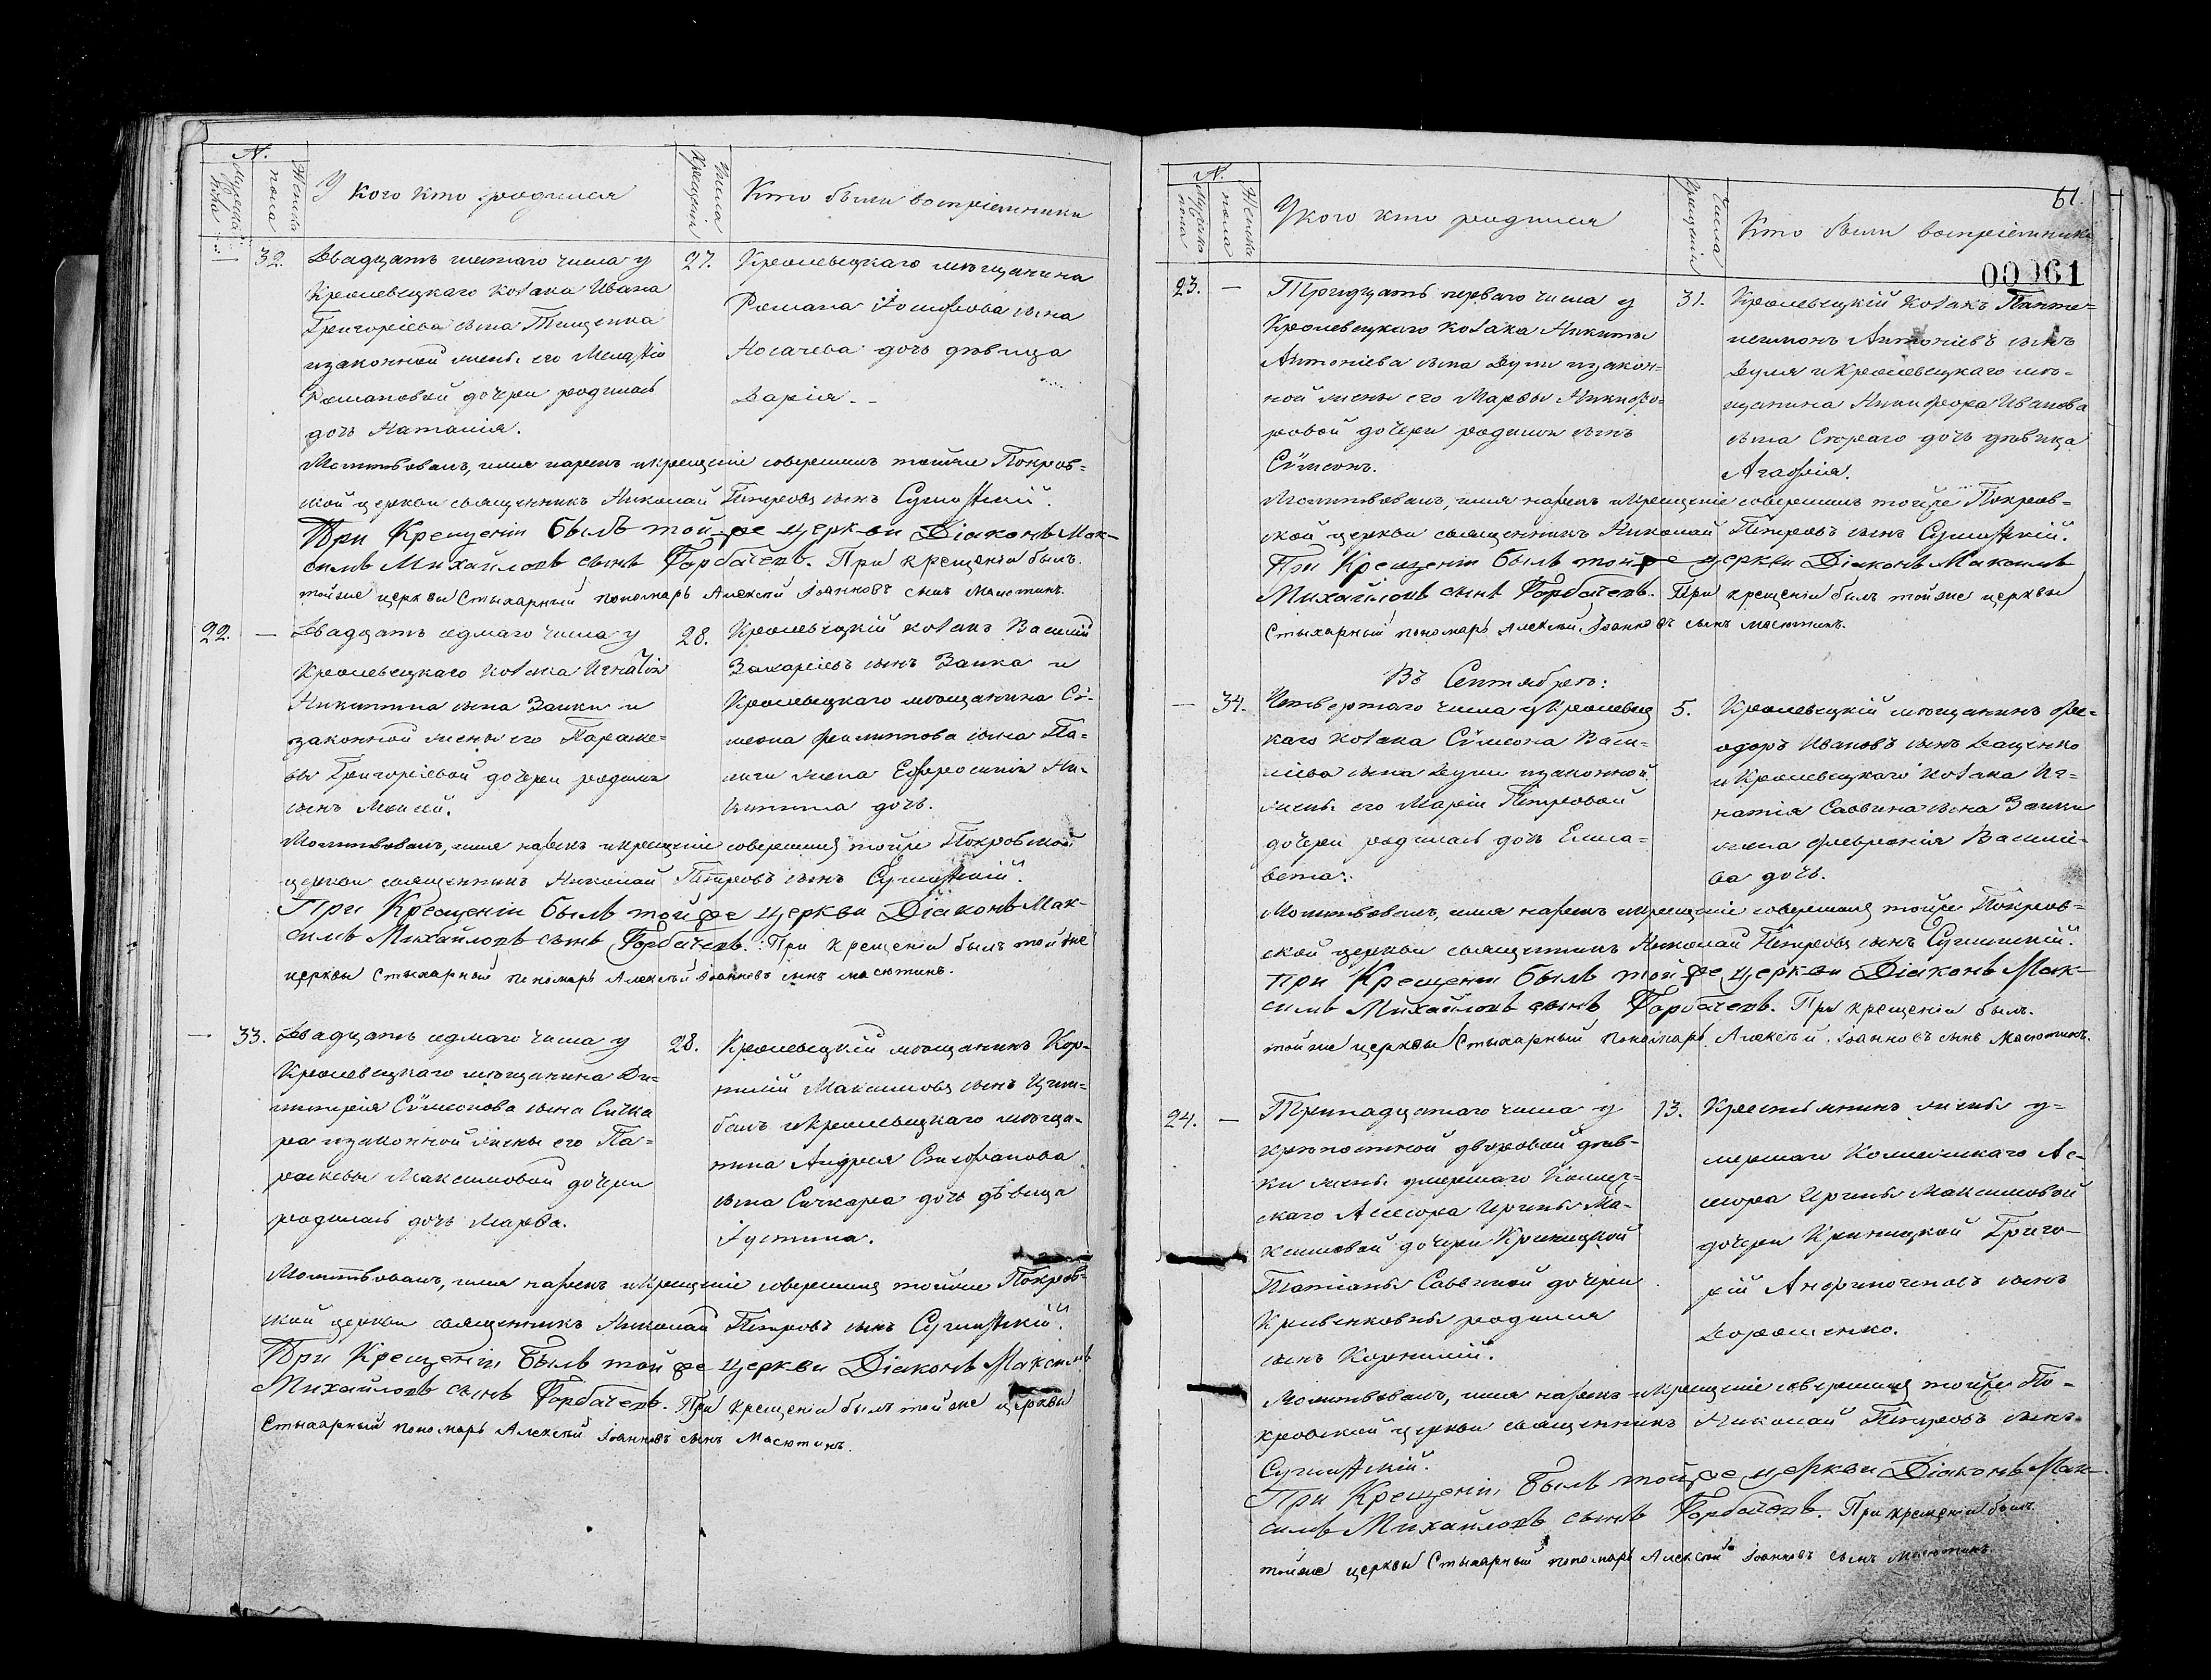 N.
Мужеска пола
Женска пола
У кого кто родился
Числа Крещенія
Кто были воспріемники
32.
Двадцать шестаго числа у
Кролевецкаго козака Ивана
Григоріева сына Тищенка
и законной жены его Меланіи
Романовой дочери родилась
дочь Наталія.
27.
Кролевецкаго мѣщанина
Романа Іосифова сына
Носачева дочь дѣвица
Дарія.
Молитвовалъ, имя нарекъ и крещеніе совершилъ тойже Покров-
ской церкви священникъ Николай Петровъ сынъ
При Крещеніи былъ той же церкви Діаконъ Мак-
симъ Михайловъ сынъ Горбачевъ. При крещеніи былъ
тойже церкви Стихарный пономарь Алексѣй Іоанновъ сынъ Масютинъ.
22. —
Двадцать седмаго числа у
Кролевецкаго козака Игнатія
Никитина сына Заики и
законной жены его Параске-
вы Григоріевой дочери родился
сынъ Моисей.
28.
Кролевецкій козакъ Василій
Захаріевъ сынъ Заика и
Кролевецкаго мѣщанина Сѵ-
меона Филиппова сына Па-
жена Евфросинія Ни-
китина дочь.
Молитвовалъ, имя нарекъ и крещеніе совершилъ тойже Покровской
церкви священникъ Николай Петровъ сынъ
При Крещеніи былъ той же церкви Діаконъ Мак-
симъ Михайловъ сынъ Горбачевъ. При крещеніи былъ той же
церкви Стихарный пономарь Алексѣй Іоанновъ сынъ Масютинъ.
— 33.
Двадцать седмаго числа у
Кролевецкаго мѣщанина Ди-
митрія Сѵмеонова сына Сичка
ра и законной жены его Па-
раскевы Максимовой дочери
родилась дочь Марѳа.
28.
Кролевецкій мѣщанинъ Кор-
нилій Максимовъ сынъ Цим-
балъ и Кролевецкаго мѣща-
нина Андрея Стефанова
сына Сичкара дочь дѣвица
Іустина.
Молитвовалъ, имя нарекъ и крещеніе совершилъ тойже Покров-
ской церкви священникъ Николай Петровъ сынъ
При Крещеніи былъ той же церкви Діаконъ Максимъ
Михайловъ сынъ Горбачевъ. При крещеніи былъ той же церкви
Стихарный пономарь Алексѣй Іоанновъ сынъ Масютинъ.
61.
00061
N.
Мужеска пола
Женска пола
У кого кто родился
Числа Крещенія
Кто были воспріемники
23. —
Тридцать перваго числа у
Кролевецкаго козака Никиты
Антоніева сына Дули и закон-
ной жены его Марѳы Никифо-
ровой дочери родился сынъ
Сѵмеонъ.
31.
Кролевецкій козакъ Панте-
леимонъ Антоніевъ сынъ
Дуля и Кролевецкаго мѣ-
щанина Никифора Иванова
сына Скораго дочь дѣвица
Агафія.
Молитвовалъ, имя нарекъ и крещеніе совершилъ тойже Покров-
ской церкви священникъ Николай Петровъ сынъ
При Крещеніи былъ той же церкви Діаконъ Максимъ
Михайловъ сынъ Горбачевъ. При крещеніи былъ тойже церкви
Стихарный пономарь Алексѣй Іоанновъ сынъ Масютинъ.
Въ Сентябрѣ:
— 34.
Четвертаго числа у Кролевец
каго козака Сѵмеона Васи-
ліева сына Дули и законной
жены его Маріи Петровой
дочери родилась дочь Елиса-
вета.
5.
Кролевецкій мѣщанинъ Фе-
одоръ Ивановъ сынъ Даценко
и Кролевецкаго козака Иг-
натія Саввина сына Заики
жена Февронія Василіе-
ва дочь.
Молитвовалъ, имя нарекъ и крещеніе совершилъ тойже Покров-
ской церкви священникъ Николай Петровъ сынъ
При Крещеніи былъ той же церкви Діаконъ Мак-
симъ Михайловъ сынъ Горбачевъ. При крещеніи былъ
тойже церкви Стихарный пономарь Алексѣй Іоанновъ сынъ Масютинъ.
24. —
Тринадцатаго числа у
крѣпостной дворовой дѣв-
ки жены умершаго Коллеж-
скаго Ассесора Ирины Ма-
ксимовой дочери Криницкой
Татіаны Саввиной дочери
Кривенковны родился
сынъ Корнилій.
13.
Крестьянинъ жены у-
мершаго Коллежскаго Ас-
сесора Ирины Максимовой
дочери Криницкой Григо-
рій Анфиногеновъ сынъ
Дорошенко.
Молитвовалъ, имя нарекъ и крещеніе совершилъ тойже По-
кровской церкви священникъ Николай Петровъ сынъ
При Крещеніи былъ той же церкви Діаконъ Мак-
симъ Михайловъ сынъ Горбачевъ. При крещеніи былъ
тойже церкви Стихарный пономарь Алексѣй Іоанновъ сынъ Масютинъ.